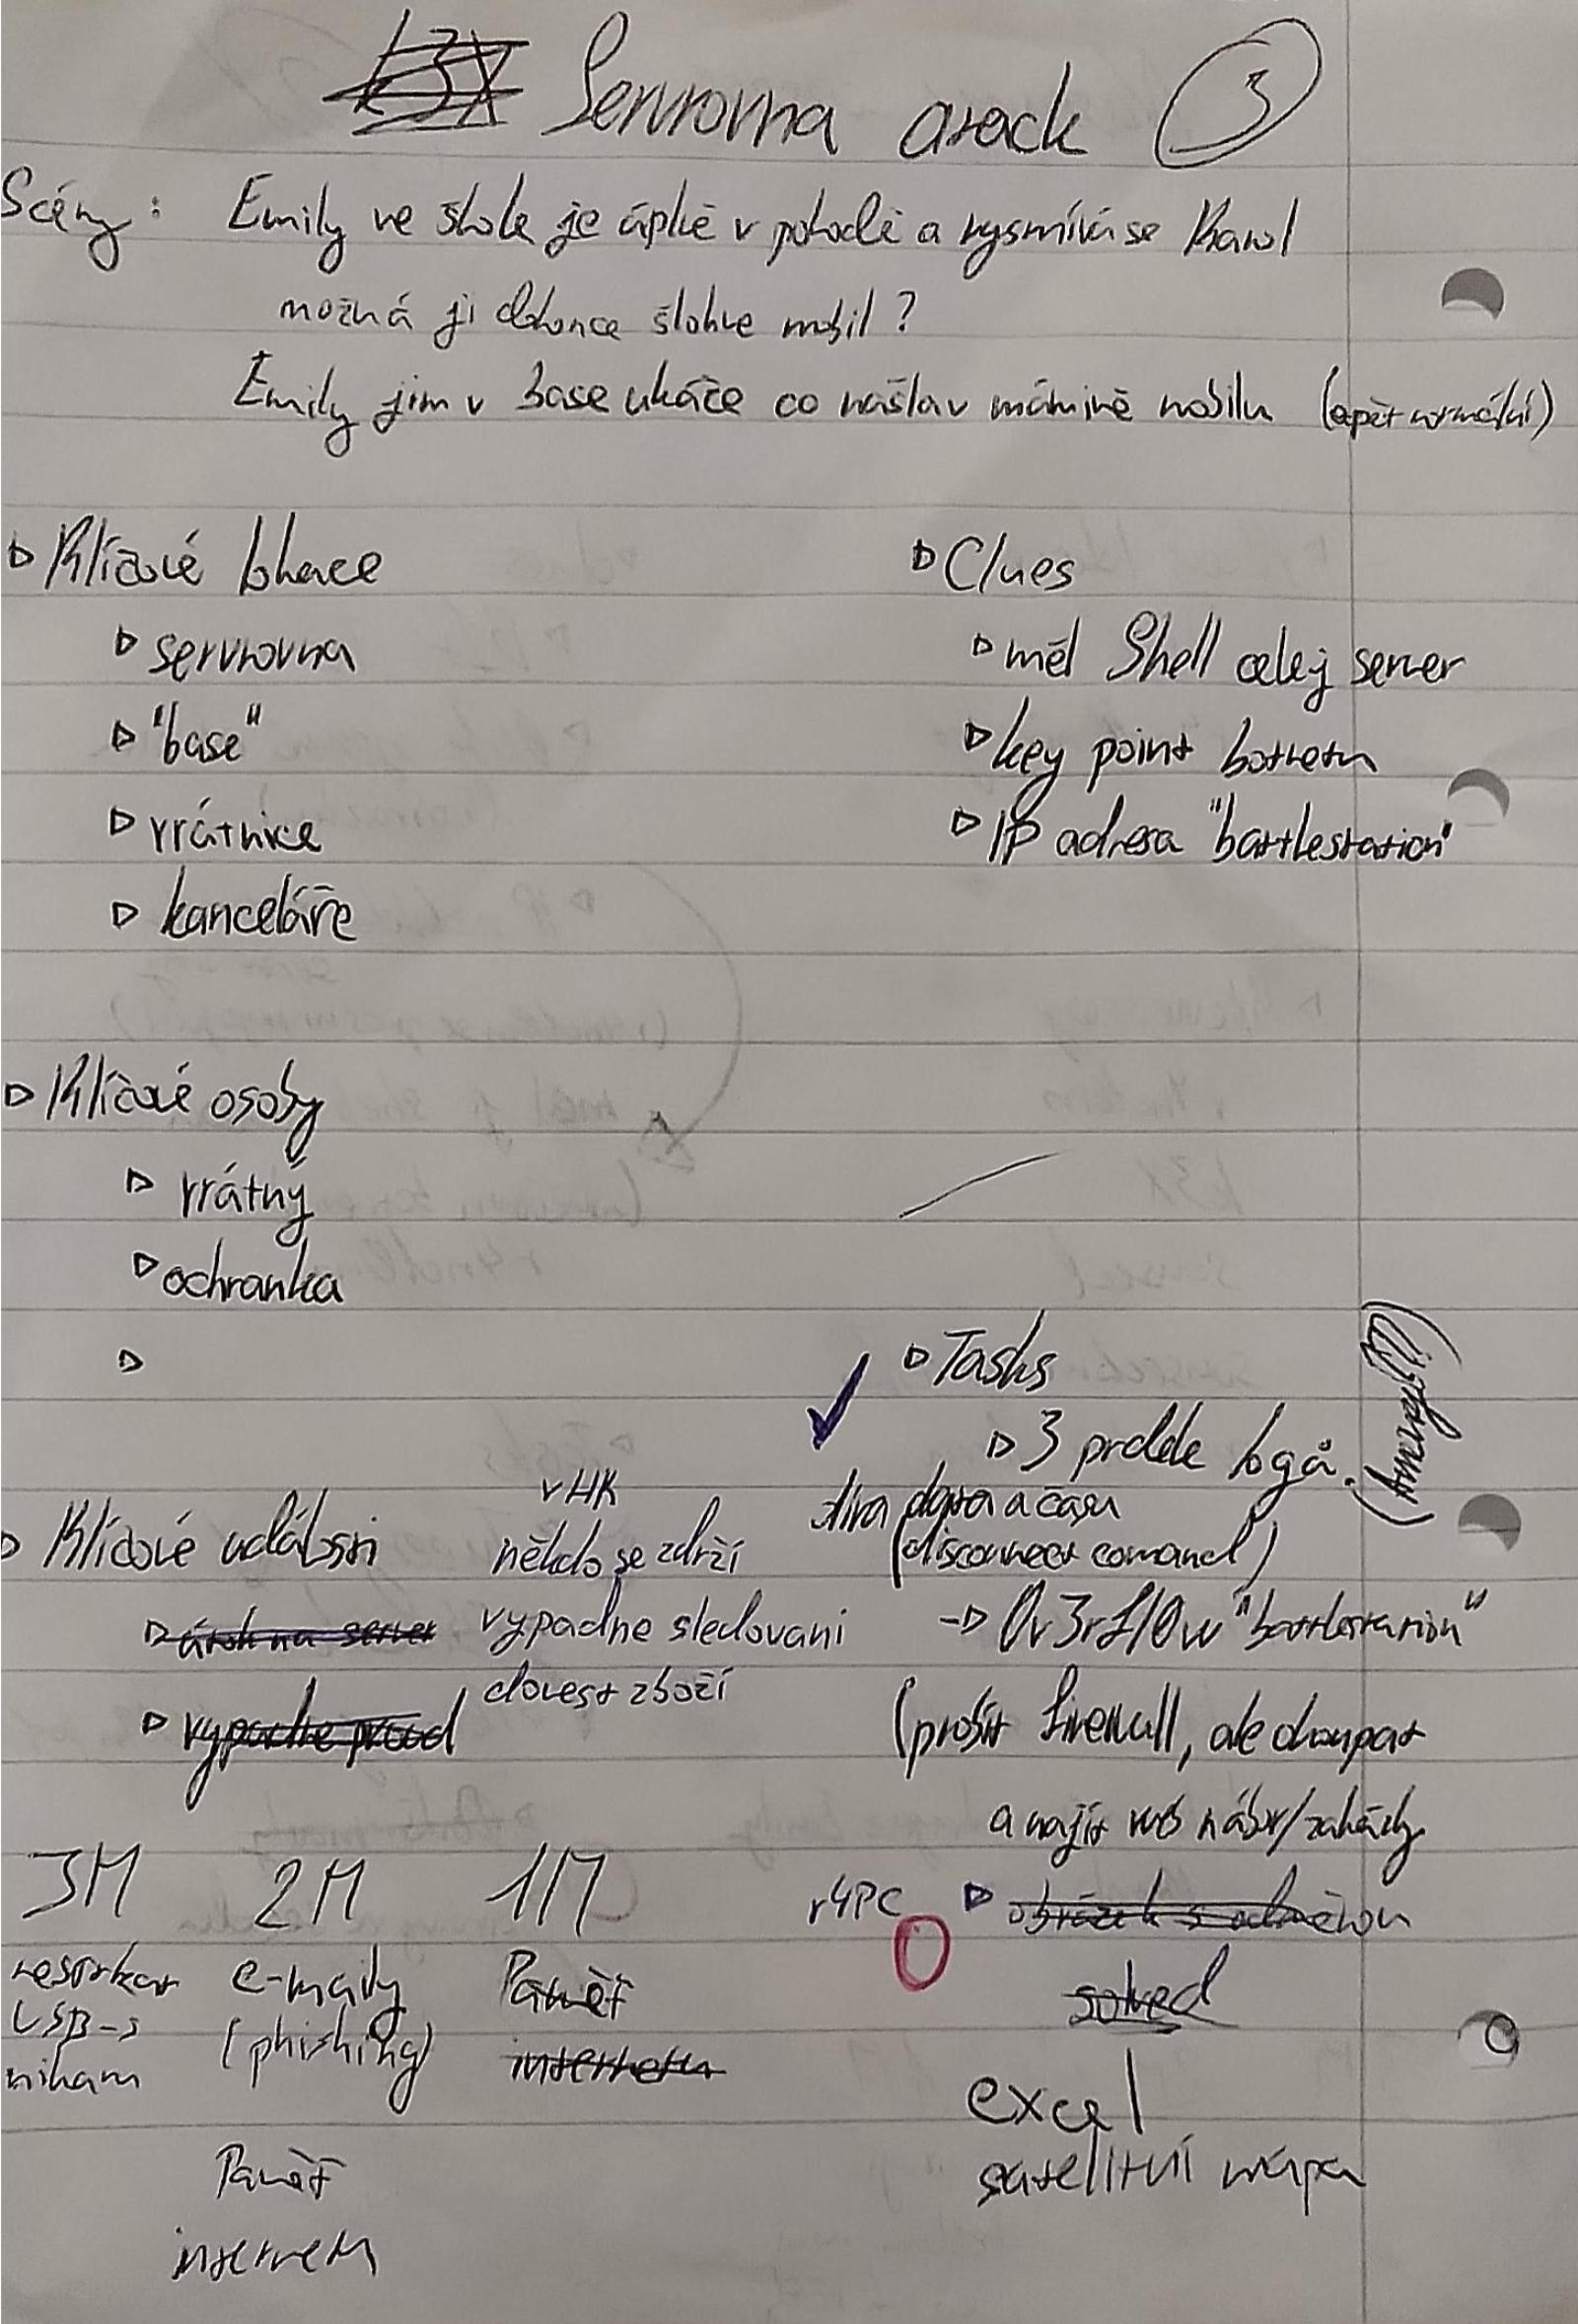 Servrovna atack 3
Scény: Emily ve škole je úplně v pohodě a vysmívá se Karol
možná ji dokonce šlohne mobil?
Emily jim v base ukáže co našla v mámině mobilu (opět normální)
Klíčové lokace
servrovna
"base"
vrátnice
kanceláře
Clues
měl Shell celej server
key point botnetu
IP adresa "battlestation"
Klíčové osoby
vrátný
ochranka
Tasks
3 projde logů.
díra data a času
(disconnect comand)
-> 0v3rfl0w "battlestation"
(prošít firewall, ale chroupat
a najít web / záhady
r4PC obrázek s odměnou
solved
excel
satelitní mapa
Klíčové události
útok na server
vypadne proud
v HK
někdo se zdrží
vypadne sledovani
dovest zboží
3M 2M 1M
nestrkat
USB-s
nikam
e-maily
(phishing)
Paměť
internetu
Paměť
internetu